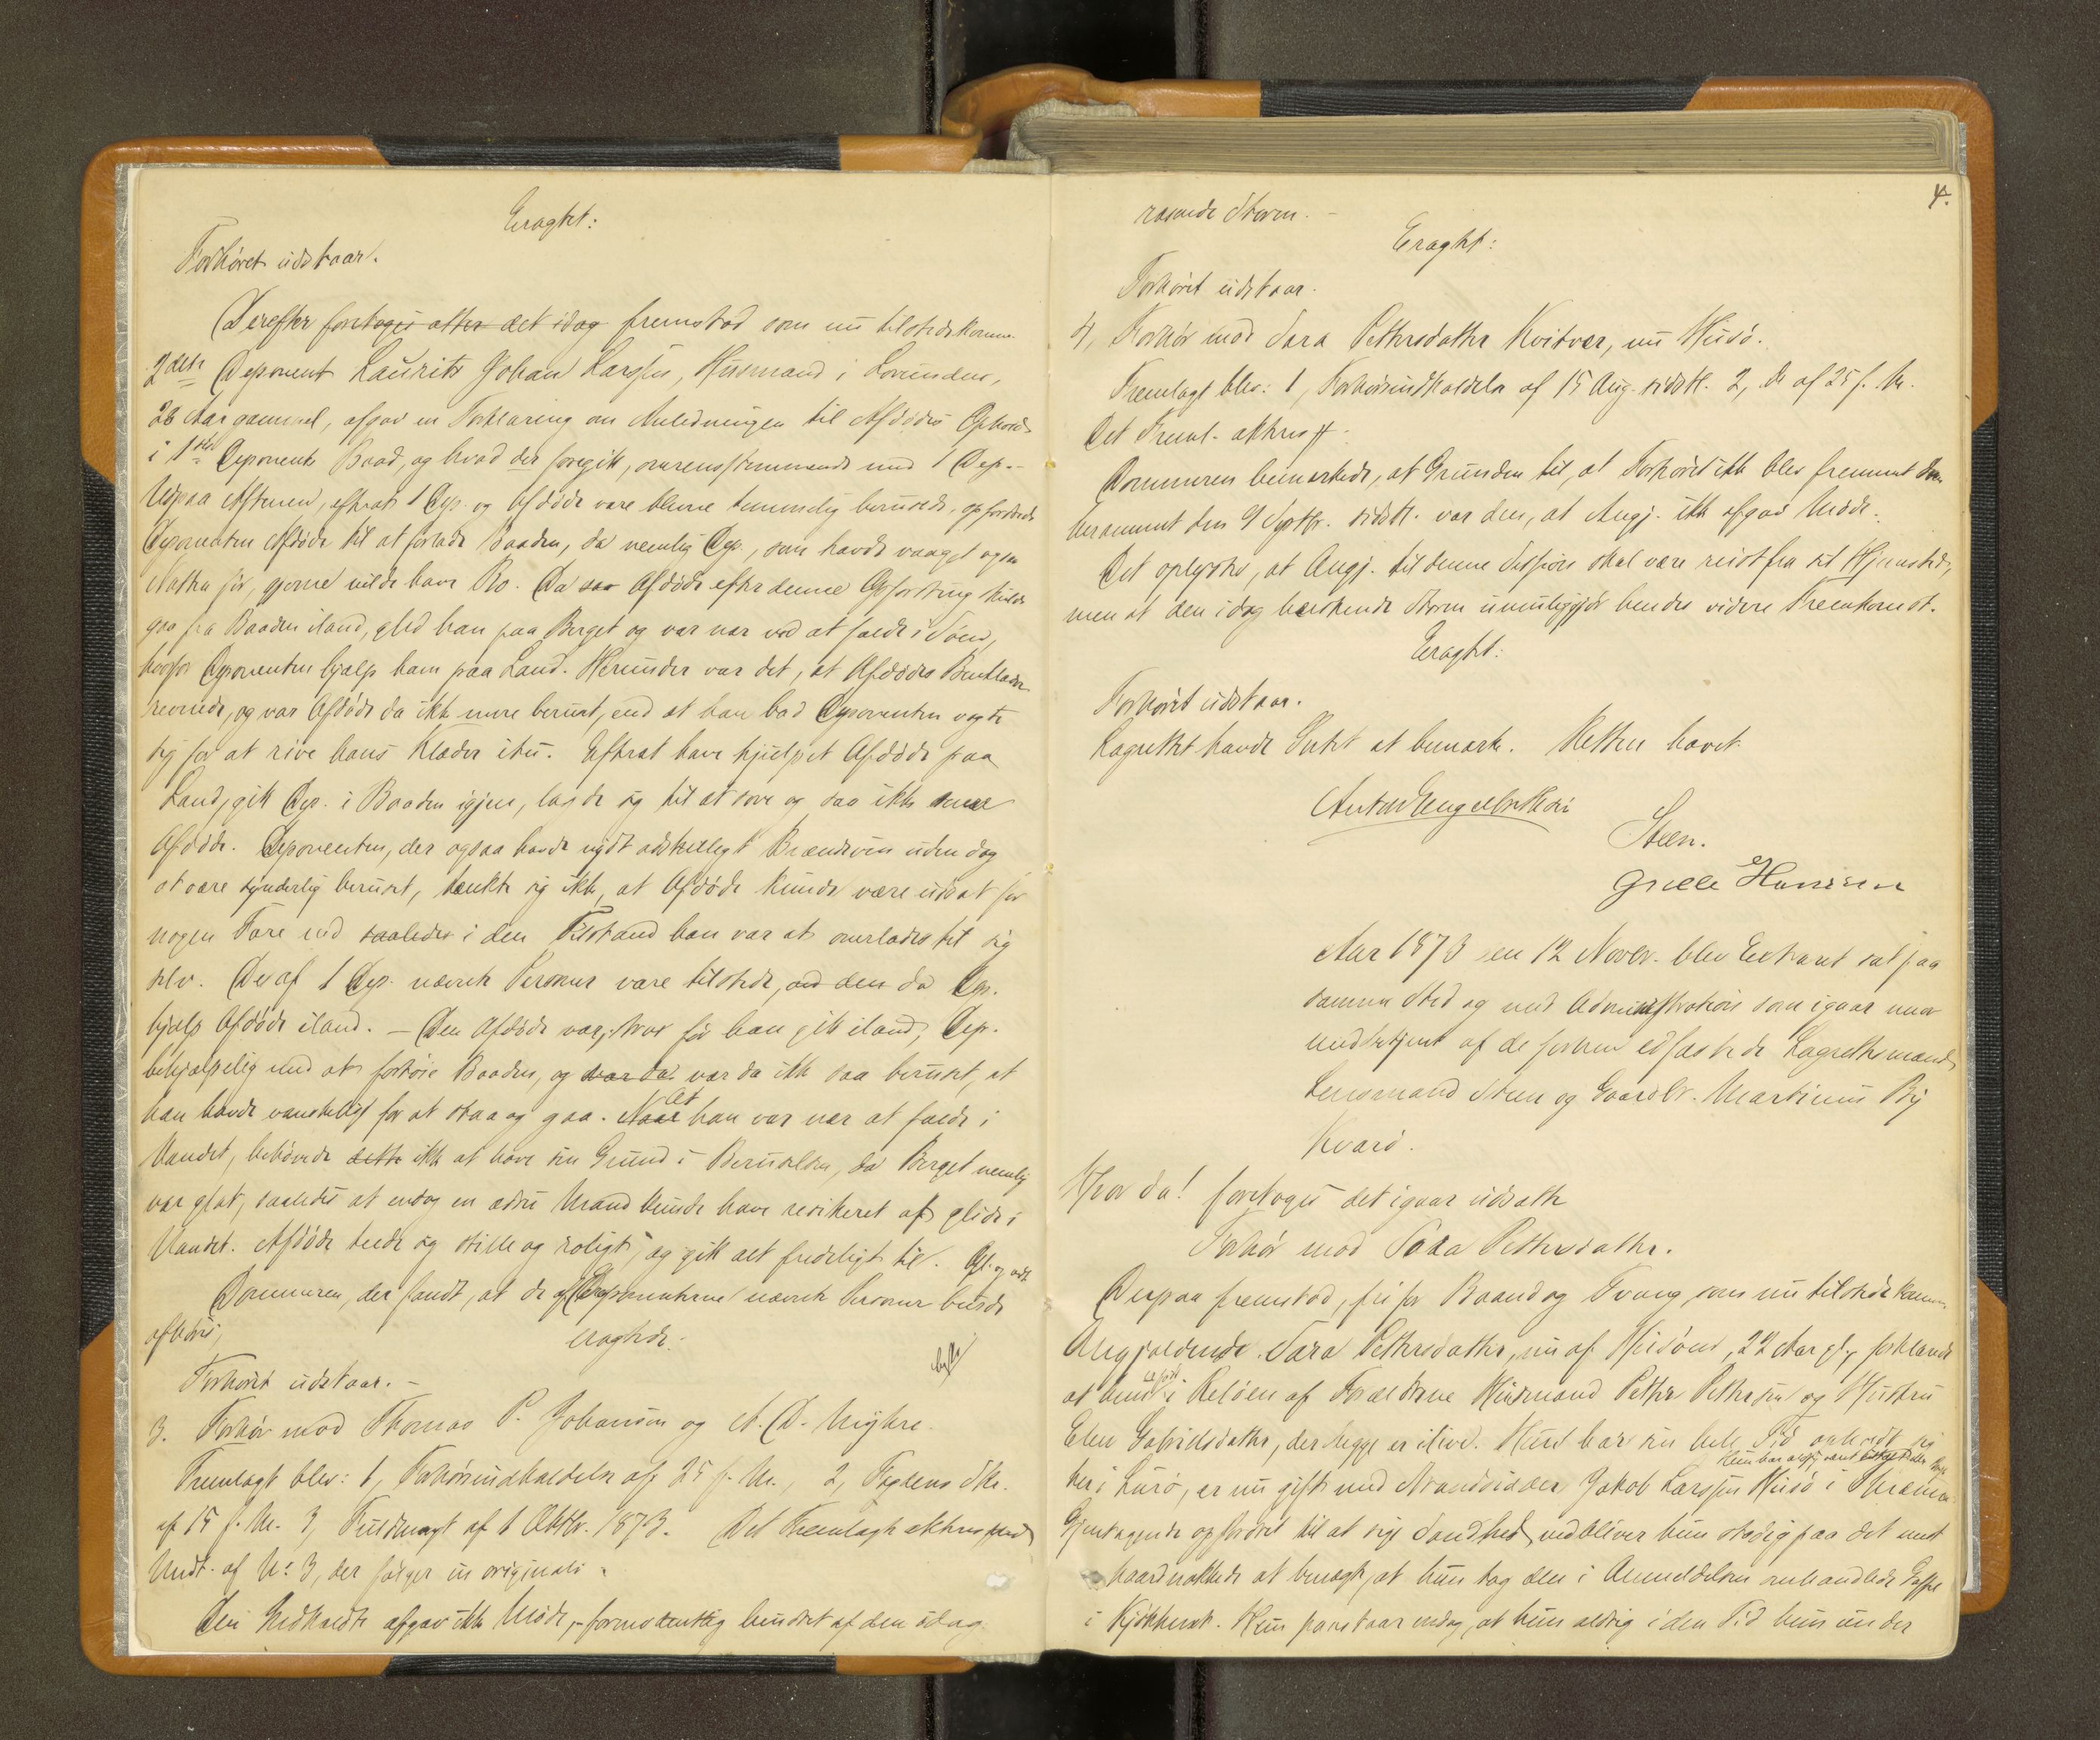 Eragtet:
Forhøret udstaar.
Derefter foretoges atter det idag fremstod som nu tilstedekomne
2den Deponent Laurits Johan Larssen, Husmand i Lovunden,
26 Aar gammel, afgav en Forklaring om Anledningen til Afdødes Ophold
i 1ste Deponents Baad, og hvad der foregik, overensstemmende med 1 Dep.-
Udpaa Aftenen, efterat 1 Dep. og Afdøde vare blevne temmelig berusede, opfordrede
Deponenten Afdøde til at forlade Baaden, da nemlig Dep., som havde vaaget ogsaa
Natten før, gjerne vilde have Ro. Da saa Afdøde efter denne Opfordring skulde
gaa fra Baaden iland, gled han paa Berget og var nær ved at falde i Søen,
hvorfor Deponenten hjalp ham paa Land. Herunder var det, at Afdødes Benklæder
revnede, og var Afdøde da ikke mere beruset, end at han bad Deponenten vogte
sig for at rive hans Klæder itu. Efterat have hjulpet Afdøde paa
Land, gik Dep. i Baaden igjen, lagde sig til at sove og saa ikke mere
Afdøde. Deponenten, der ogsaa havde nydt adskilligt Brændevin uden dog
at være synderlig beruset, tænkte sig ikke, at Afdøde kunde være udsat for
nogen Fare ved saaledes i den Tilstand han var at overlades til sig
selv. De af 1 Dep. nævnte Personer vare tilstede, ved den da Dep.
hjalp Afdøde iland. - Den Afdøde var, strax før han gik iland, Dep.
behjælpelig med at fortøie Baaden, og var da var da ikke saa beruset, at
han havde vanskeligt for at staa og gaa. Naar At han var nær at falde i
Vandet, behøvede dette ikke at have sin Grund i Beruselsen, da Berget nemlig
var glat, saaledes at endog en ædru Mand kunde have risikeret at glide i
Vandet. Afdøde teede sig stille og roligt, og gik alt fredeligt til. Opl. og vedt.
Dommeren, der fandt, at de af Deponenterne nævnte Personer burde
afhøres,
eragtede:
Forhøret udstaar. -
3. Forhør mod Thomas P. Johansen og A. D. Myhre.
Fremlagt blev: 1, Forhørsindkaldelse af 25 f. M., 2, Fogdens Skr.
af 15 f. M. 3, Fuldmagt af 1 Oktbr. 1873. Det Fremlagte akteres med
Undt. af No 3, der følger in originali.
De Indkaldte afgav ikke Møde, - formodentlig hindret af den idag
4.
rasende Storm. -
Eragtet:
Forhøret udstaar.
4, Forhør mod Sara Pettersdatter Kvitvær, nu Husø.
Fremlagt blev: 1, Forhørsindkaldelse af 15 Aug. sidstl. 2, Do af 25 f. M.
Det Freml. akteres #.
Dommeren bemærkede, at Grunden til, at Forhøret ikke blev fremmet som
berammet den 9 Septbr. sidstl. var den, at Angj. ikke afgav Møde.
Det oplystes, at Angj. til denne Session skal være reist fra sit Hjemsted,
men at den idag herskende Storm umuliggjør hendes videre Fremkomst.
Eragtet:
Forhøret udstaar.
Lagrettet havde Intet at bemærke. Retten hævet.
Anton Engelbrethsen
Steen.
Grelle Hanssen
Aar 1873 den 12 Novbr. blev Extraret sat paa
samme Sted og med Administration som igaar med
undertegnet af de forhen edfæstede Lagrettesmænd,
Lensmand Steen og Gaardbr. Martinus By
Kvarø.
Hvor da! foretoges det igaar udsatte
Forhør mod Sara Pettersdatter.
Derpaa fremstod, fri for Baand og Tvang, som nu tilstedekommen
Angjældende Sara Pettersdatter, nu af Husøen, 22 Aar gl., forklarede
at hun er født i Reløen af Forældrene Husmand Petter Pettersen og Hustru
Elen Gabrielsdatter, der begge er ilive. Hun har sin hele Tid opholdt sig
her i Lurø, er nu gift med Strandsidder Jakob Larssen Husø i Træna.
Hun har aldrig været
Gjentagende opfordret til at sige Sandhed, vedbliver hun stadig paa det mest
haardnakkede at benægte, at hun tog den i Anmeldelsen omhandlede Gaffel
i Kjøkkenet. Hun paastaar endog, at hun aldrig i den Tid hun under